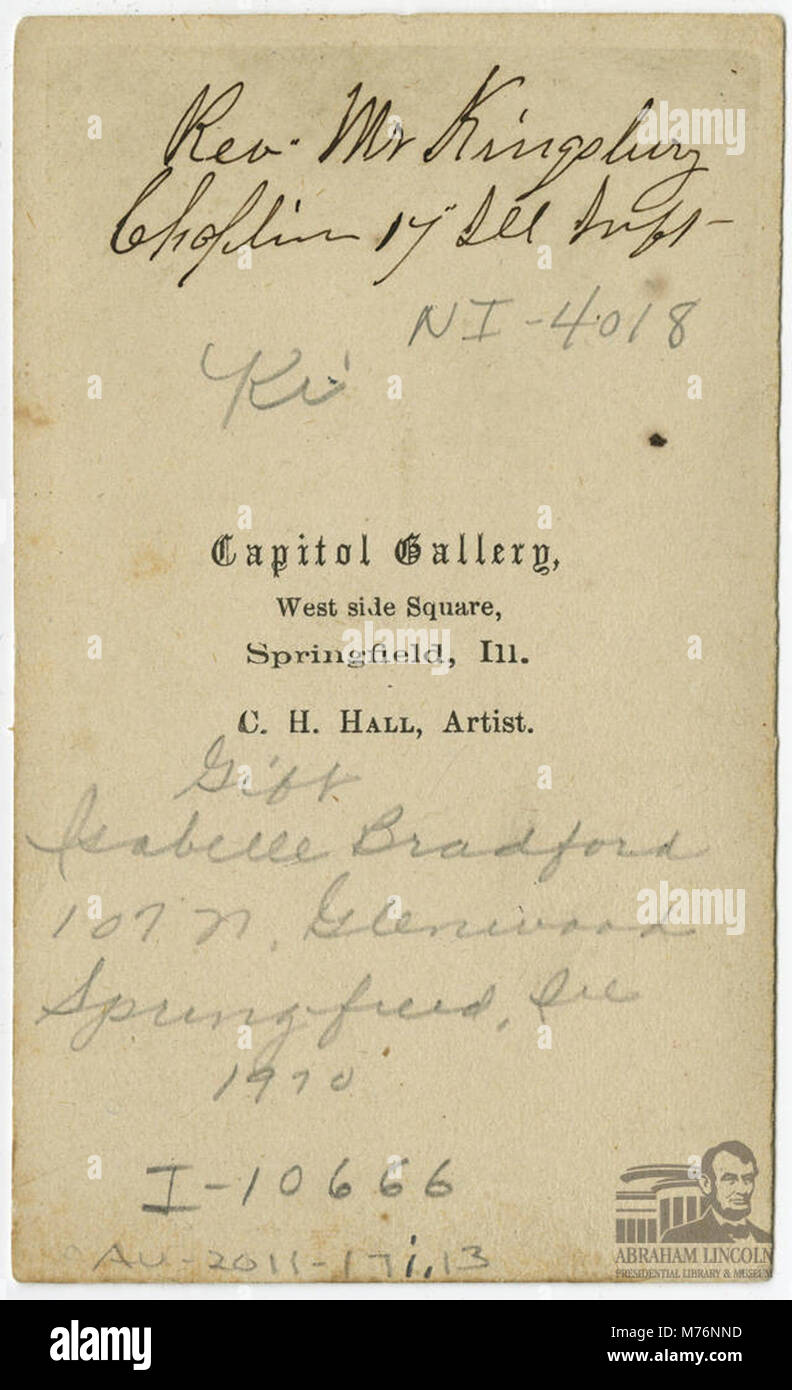 Rev. Mr Kingsbury
Chaplin 17" Ill Inft
NI-4018
Ki
Capitol Gallery,
West side Square,
Springfield, Ill.
C. H. HALL, Artist.
Gift
Isabelle Bradford
107 N. Glenwood
Springfield, Ill
1970
I-10666
AV-2011-17i.13
ABRAHAM LINCOLN
PRESIDENTIAL LIBRARY & MUSEUM
alamy
alamy
alamy
a alamy
Image ID: M76NND
www.alamy.com